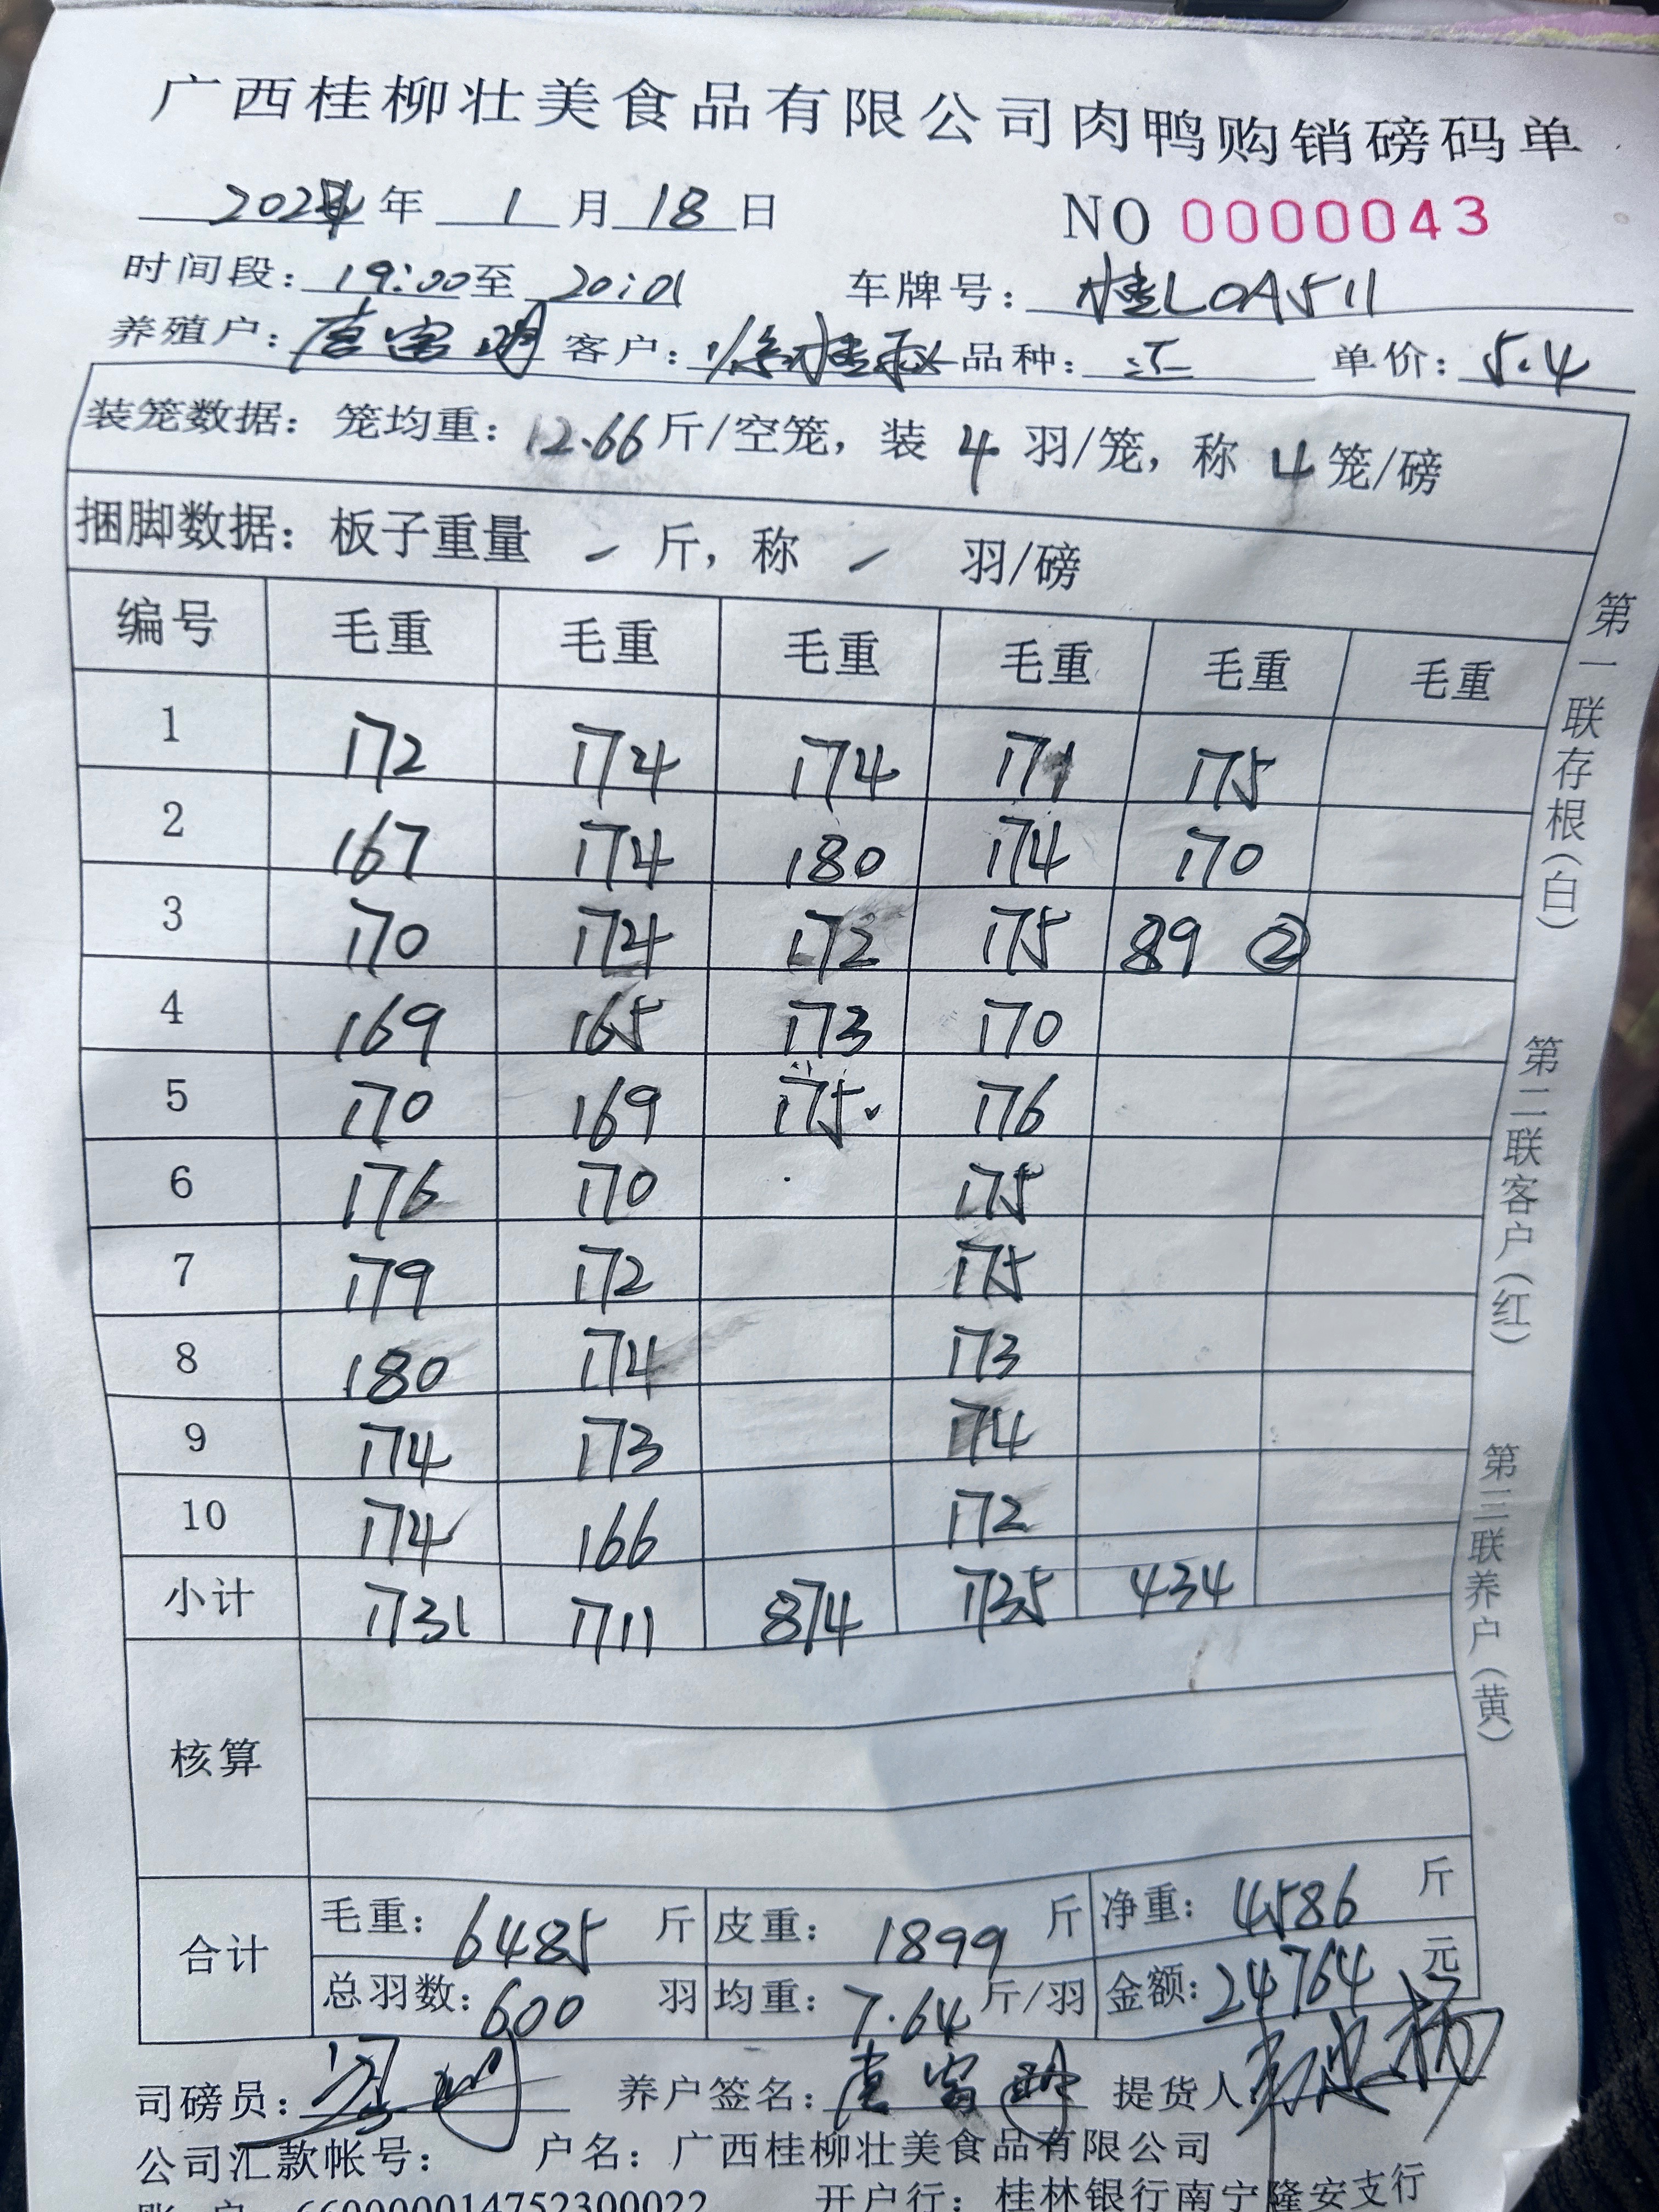 广西桂柳壮美食品有限公司肉鸭购销磅码单
2024年 1月18日 NO 0000043
时间段：19:00至 20:01 车牌号：桂L0A511
养殖户：富明 客户：徐桂秋 品种： 单价：5.4
装笼数据：笼均重：12.66斤/空笼，装 4 羽/笼，称 4笼/磅
捆脚数据：板子重量 - 斤，称 - 羽/磅
编号 毛重 毛重 毛重 毛重 毛重 毛重
1 172 174 174 171 175
2 167 174 180 174 170
3 170 174 172 175 89 ②
4 169 165 173 170
5 170 169 175 176
6 176 170 175
7 179 172 175
8 180 174 173
9 174 173 174
10 174 166 172
小计 1731 1711 874 1735 434
核算
合计
毛重：6485 斤 皮重：1899 斤 净重：4586 斤
总羽数：600 羽 均重：7.64斤/羽 金额：24764 元
司磅员： 养户签名：富明 提货人
公司汇款帐号： 户名：广西桂柳壮美食品有限公司
账 户 660000014752300022 开户行：桂林银行南宁隆安支行
第一联存根（白）
第二联客户（红）
第三联养户（黄）